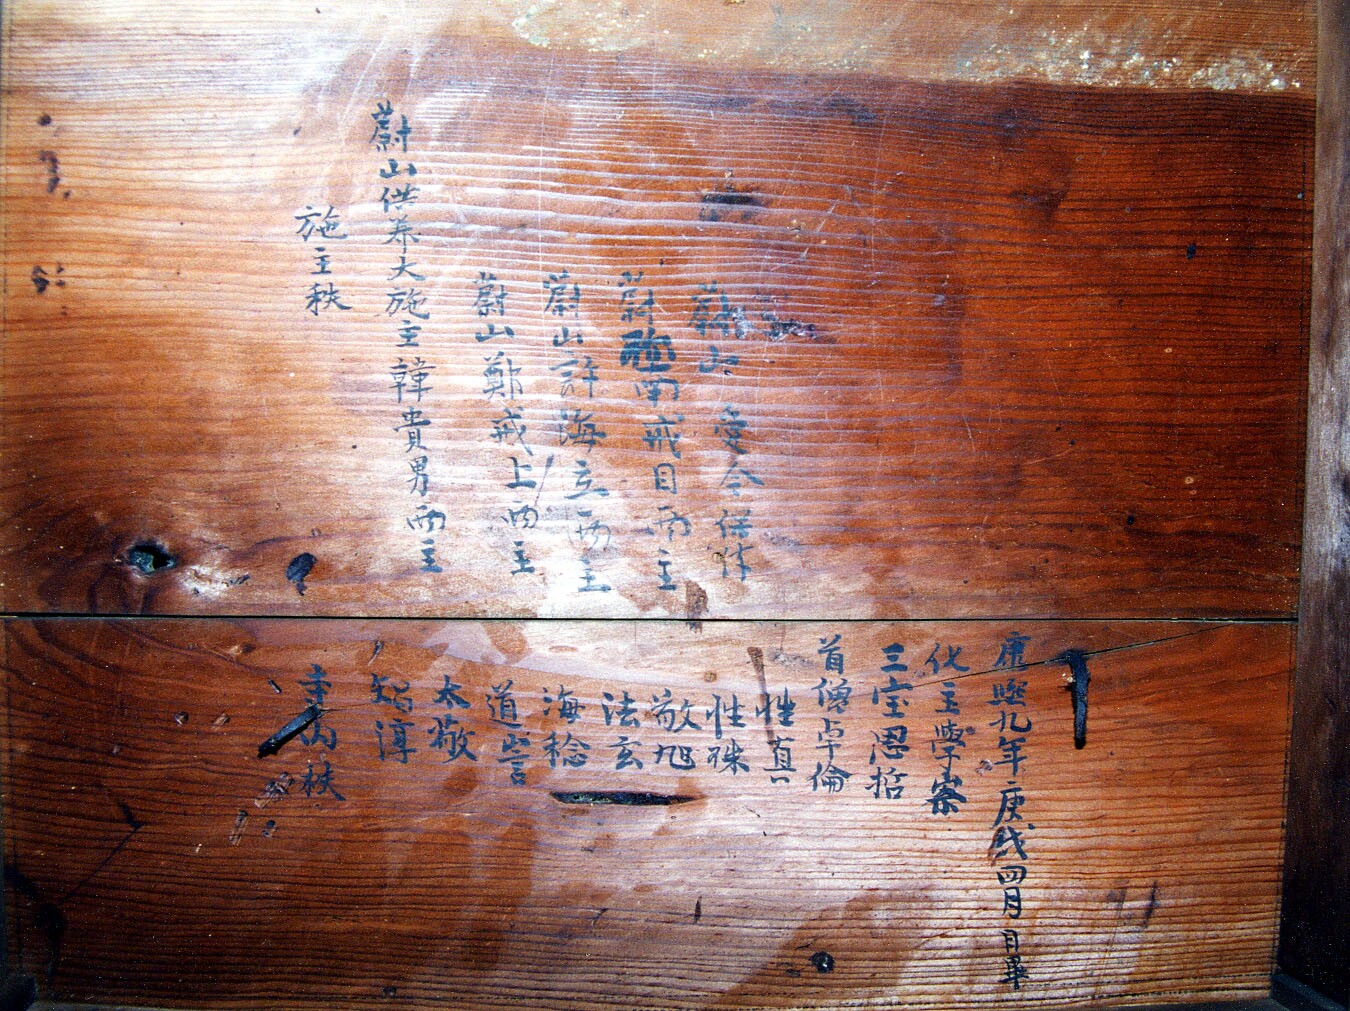 施主秩
蔚山供養大施主韓貴男両主
蔚山鄭戒上両主
蔚山許海立両主
蔚山南戒目両主
蔚山 愛今保体
寺内秩
淳
太敬
道訔
海稔
法玄
敬旭
性珠
性真
首僧卓倫
三宝思哲
化主學寮
康熙九年庚戌四月日畢